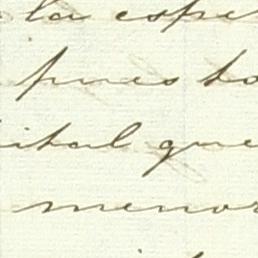 la espe
pues to
ital que
menor